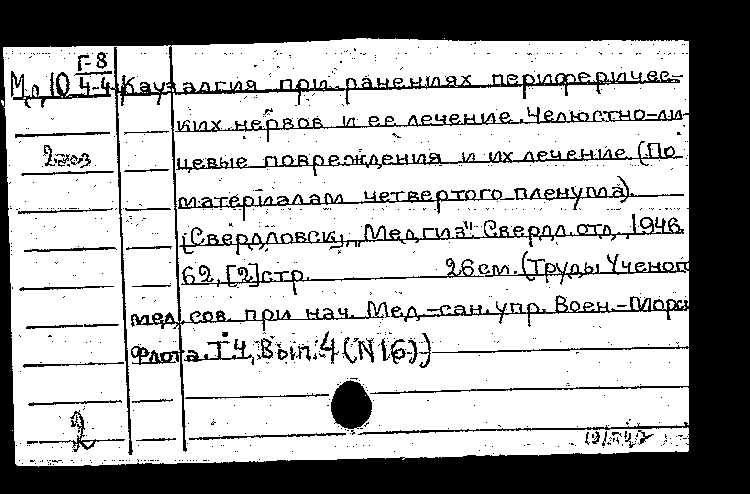 Г-8
М₂,10 4-4 Каузалгия при ранениях периферичес-
ких нервов и ее лечение. Челюстно-ли-
2 экз
цевые повреждения и их лечение (По
материалам четвертого пленума).
[Свердловск], "Медгиз". Свердл. отд., 1946.
62, [2] стр. 26 см. (Труды Учёного
мед. сов. при нач. Мед.-сан. упр. Воен.-Морск
Флота. Т 4, Вып. 4 (N 16).)
2